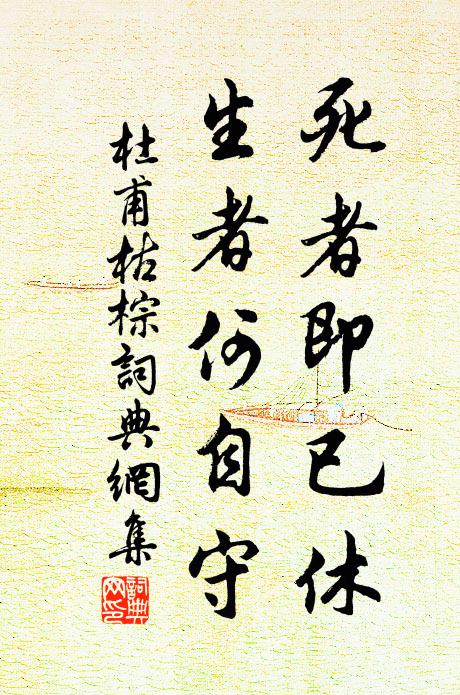 死者即已休
生者何自守
杜甫枯棕詞典網集
詞典网印